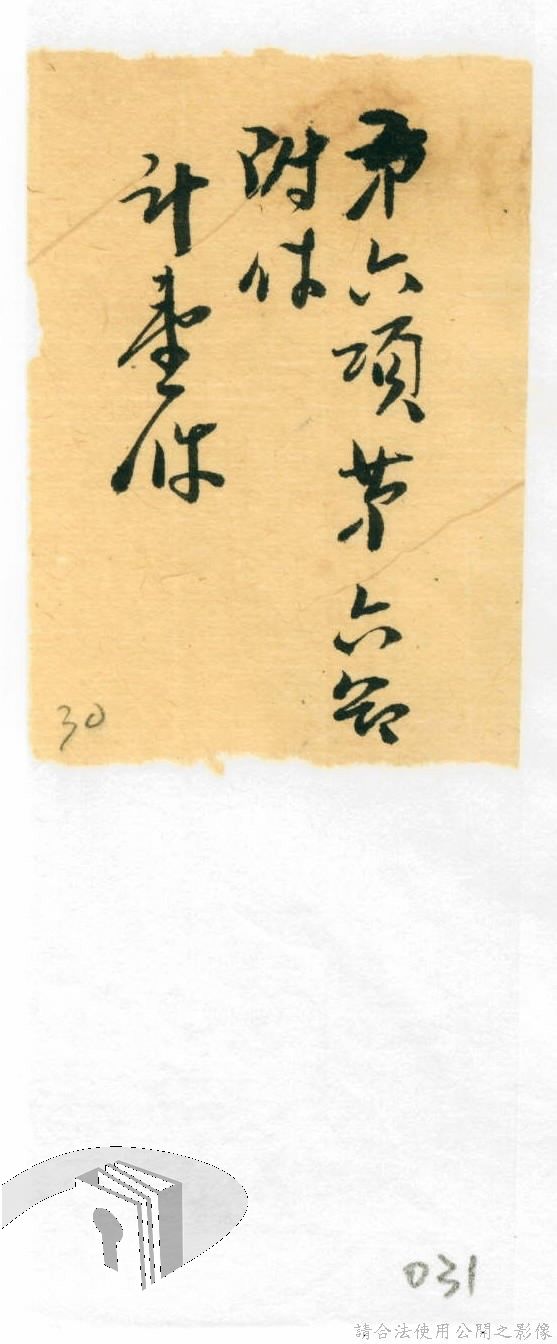 第六項第六節
附件
計壹件
30
031
請合法使用公開之影像